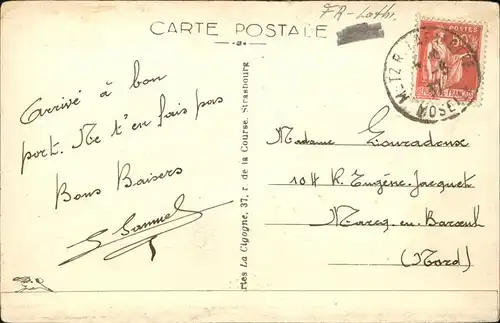 FR-Loth.
CARTE POSTALE
METZ R.
MOSELLE
50c
POSTES
Arrivé à bon
port. Ne t'en fais pas
Bons Baisers
Samuel
rtes La Cigogne, 37, r. de la Course, Strasbourg
Madame
104 R. Eugène-Jacquet
Marcq. en. Baroeul
(Nord)